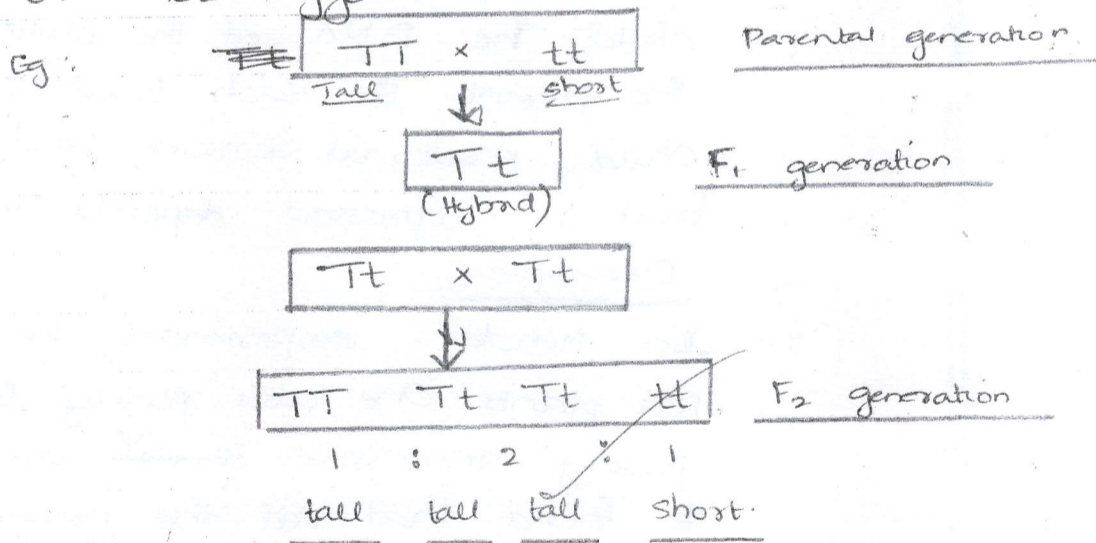 Eg: TT x tt Parental generation
Tall short
Tt F1 generation
(Hybrid)
Tt x Tt
TT Tt Tt tt F2 generation
1 : 2 : 1
tall tall tall short.